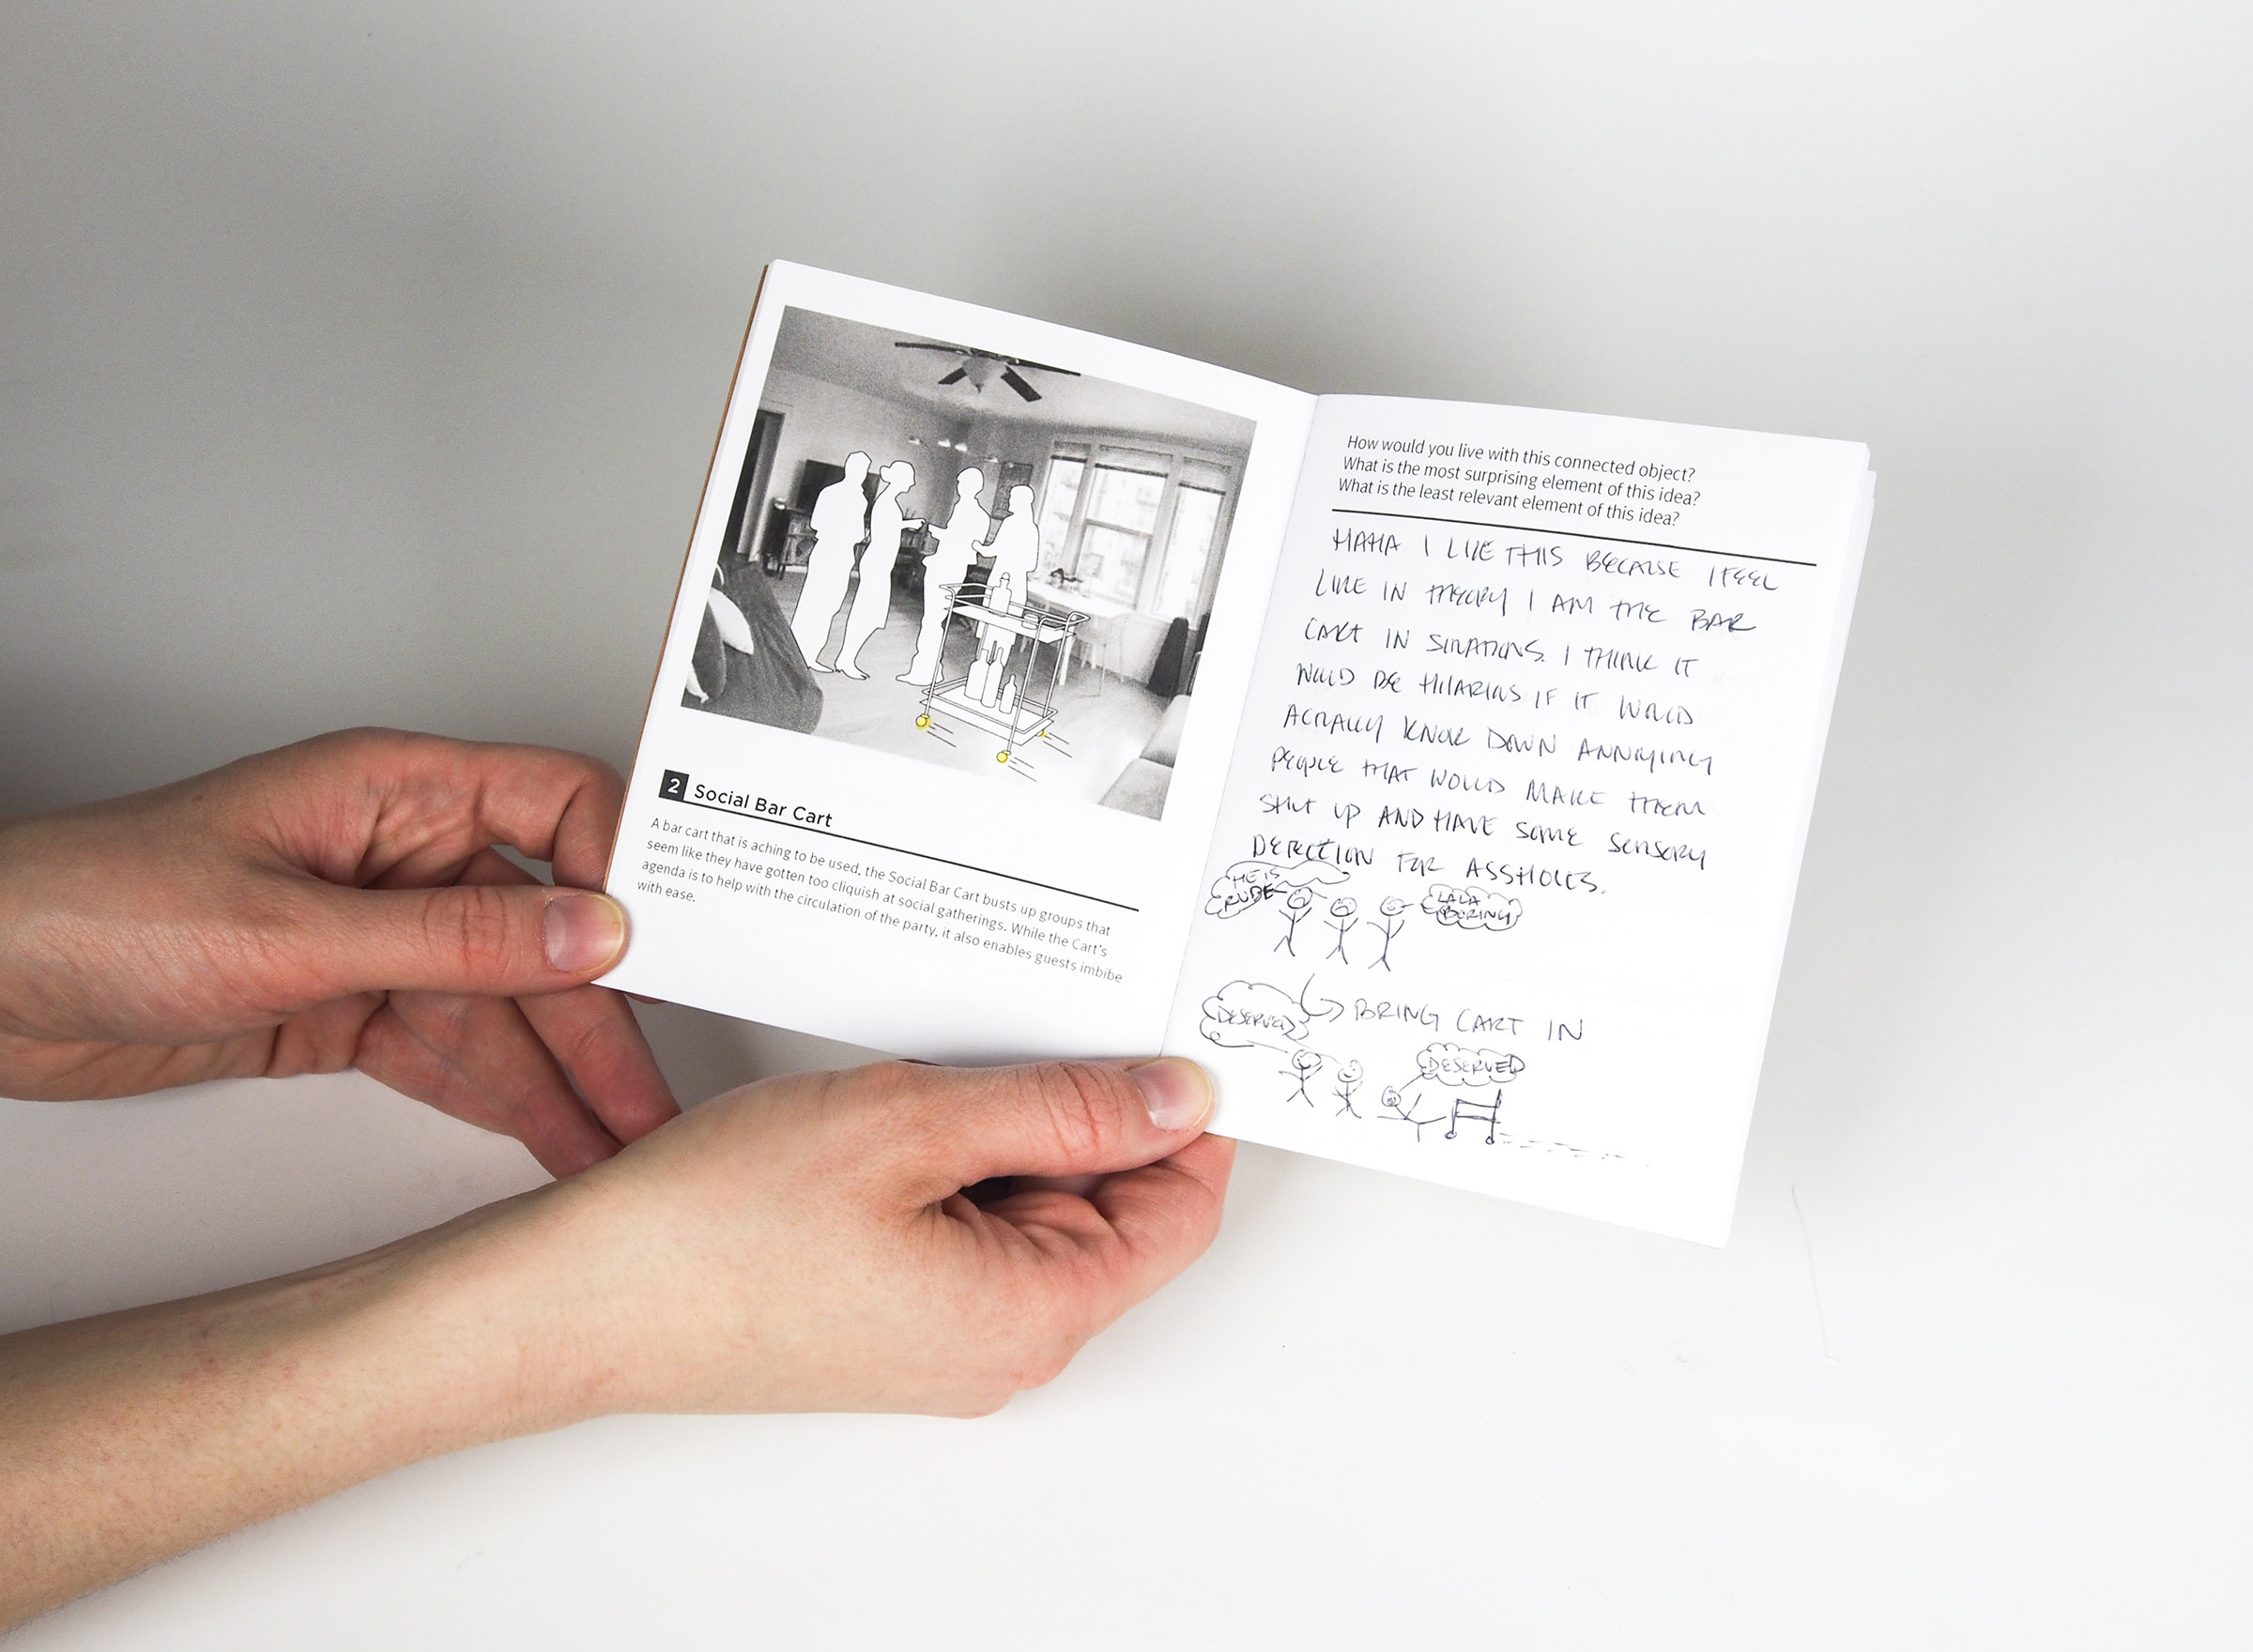 2 Social Bar Cart
A bar cart that is aching to be used, the Social Bar Cart busts up groups that
seem like they have gotten too cliquish at social gatherings. While the Cart's
agenda is to help with the circulation of the party, it also enables guests imbibe
with ease.
How would you live with this connected object?
What is the most surprising element of this idea?
What is the least relevant element of this idea?
HAHA I LIKE THIS BECAUSE I FEEL
LIKE IN THEORY I AM THE BAR
CART IN SITUATIONS. I THINK IT
WOULD BE HILARIOUS IF IT WOULD
ACTUALLY KNOCK DOWN ANNOYING
PEOPLE THAT WOULD MAKE THEM
SHUT UP AND HAVE SOME SENSORY
DETECTION FOR ASSHOLES.
HE IS
RUDE
LALA
BORING
BRING CART IN
DESERVED
DESERVED